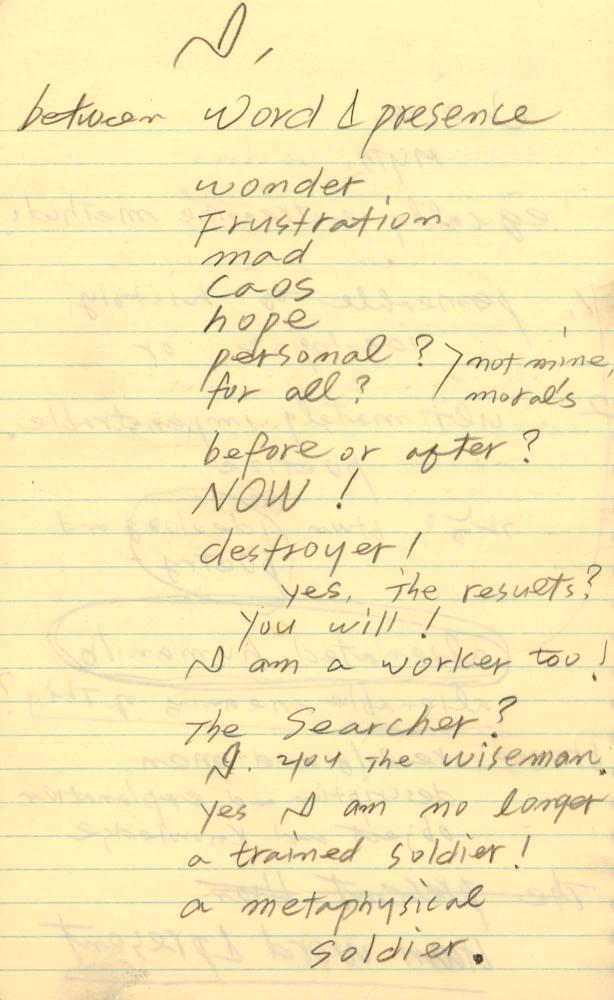 I,
between word & presence
wonder
Frustration
mad
caos
hope
personal ? } not mine,
for all ? morals
before or after ?
NOW !
destroyer !
yes, The results?
you will !
I am a worker too !
The Searcher ?
I. you The wiseman.
yes I am no longer
a trained soldier !
a metaphysical
soldier.